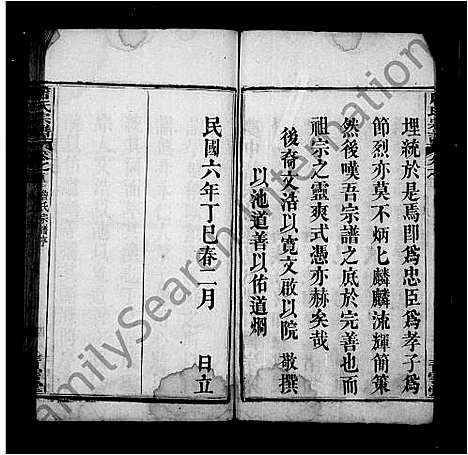 埋統於是焉卽為忠臣為孝子為
節烈亦莫不炳匕麟麟流輝簡策
然後嘆吾宗譜之底於完善也而
祖宗之靈爽式憑亦赫矣哉
後裔文浩以寬文啟以院 敬撰
以池道善以佑道炯
民國六年丁巳春二月 日立
氏宗譜
FamilySearch International